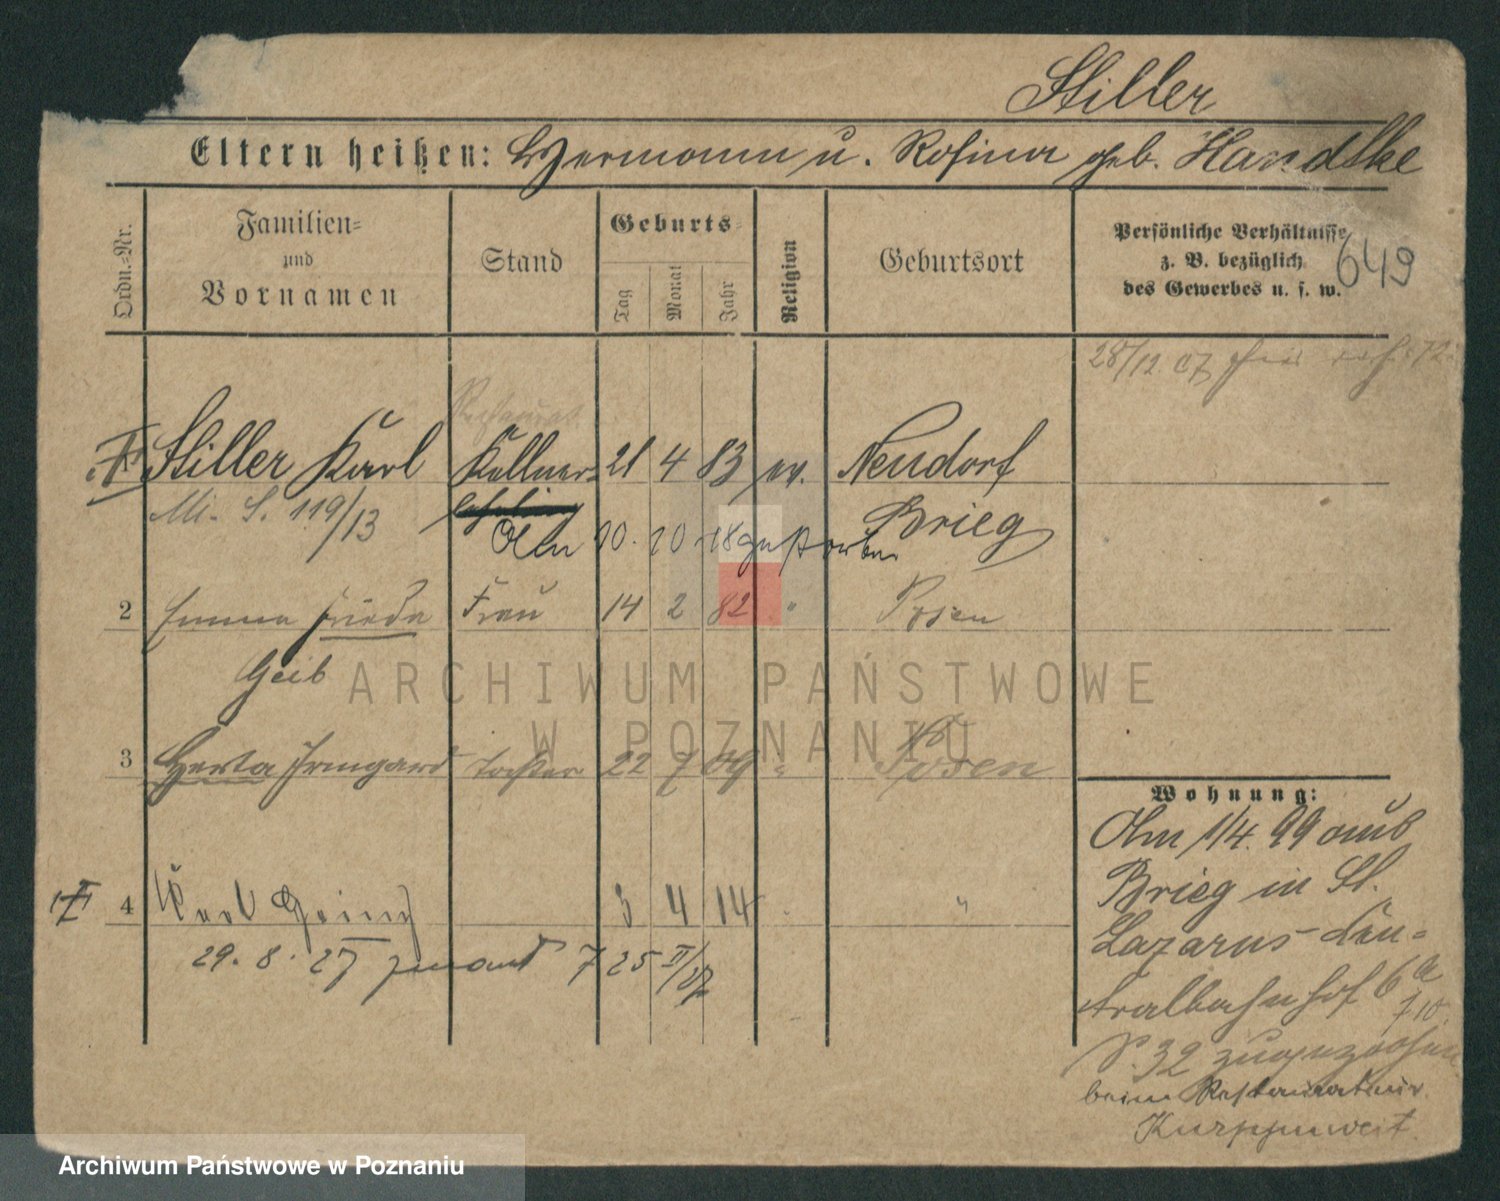 Stiller
Eltern heißen: Hermann u. Rosina geb. Handtke
Ordn.-Nr.
Familien-
und
Vornamen
Stand
Geburts-
Tag
Monat
Jahr
Religion
Geburtsort
Persönliche Verhältnisse
z. B. bezüglich
des Gewerbes u. s. w.
649
28/12. 07
Stiller Karl Kellner- 21 4 83 ev. Neudorf
Mi. S. 119/13
Brieg
Am 10. 10. 18 gestorben
2 Emma Frieda Frau 14 2 82 " Posen
Geib
3 Herta Irmgard Tochter 22 7 09 " Posen
4 Karl Heinz 3 4 14 "
29. 8. 27
7 25 II/
Wohnung:
Am 1/4. 99 aus
Brieg in St.
Lazarus Cen-
tralbahnhof 6a
S. 32 zugezogen
beim Restaurateur
ARCHIWUM PAŃSTWOWE
W POZNANIU
Archiwum Państwowe w Poznaniu